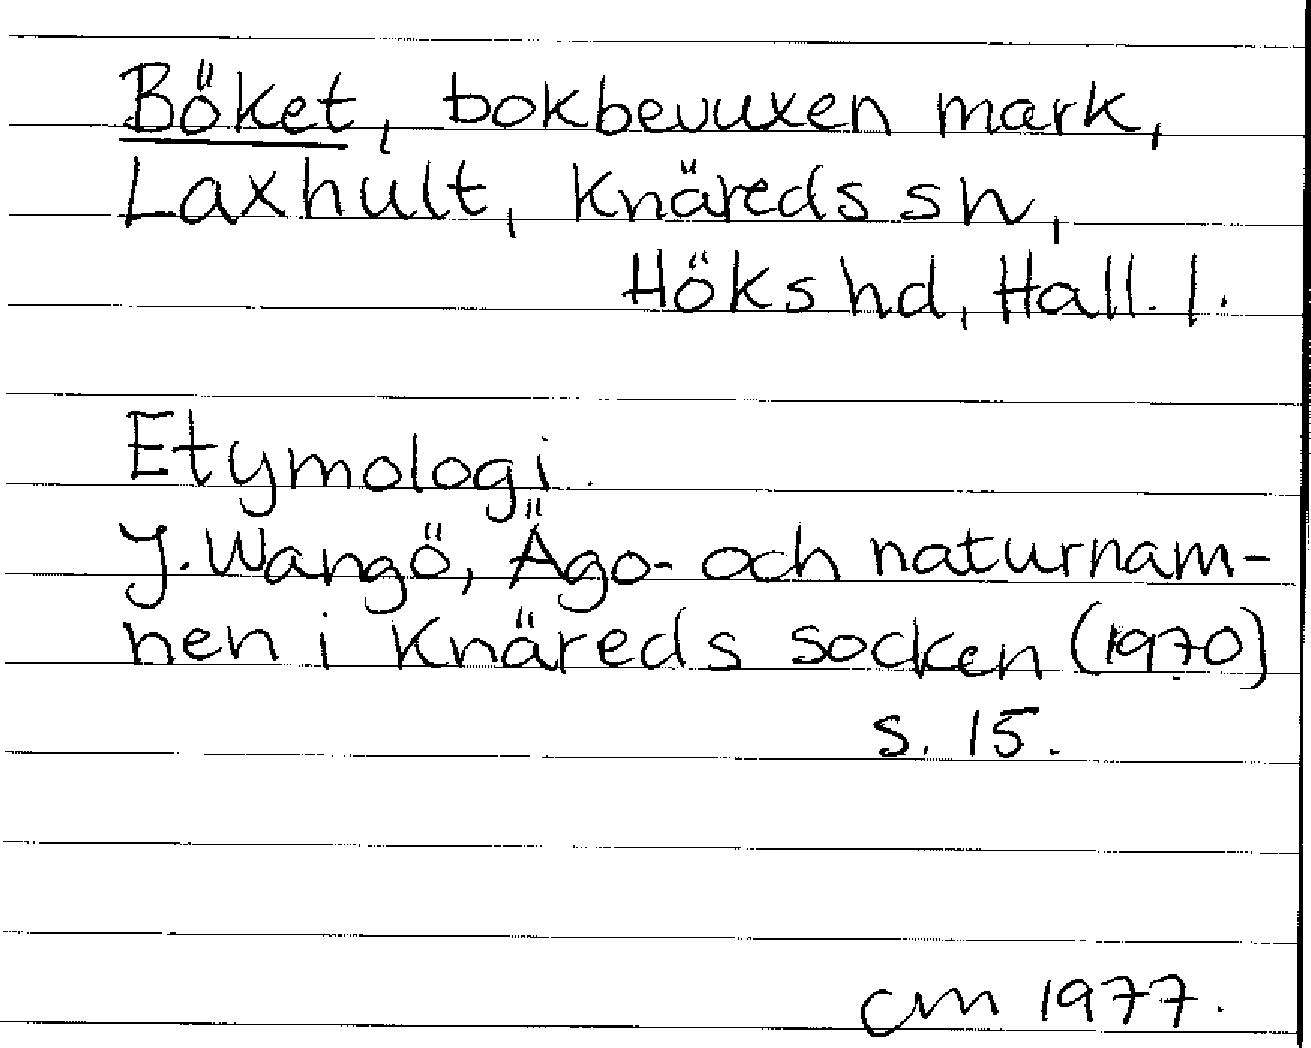 Böket, bokbevuxen mark,
Laxhult, Knäreds sn,
Höks hd, Hall. l.
Etymologi.
J. Wangö, Ägo- och naturnam-
nen i Knäreds socken (1970)
s. 15.
cm 1977.